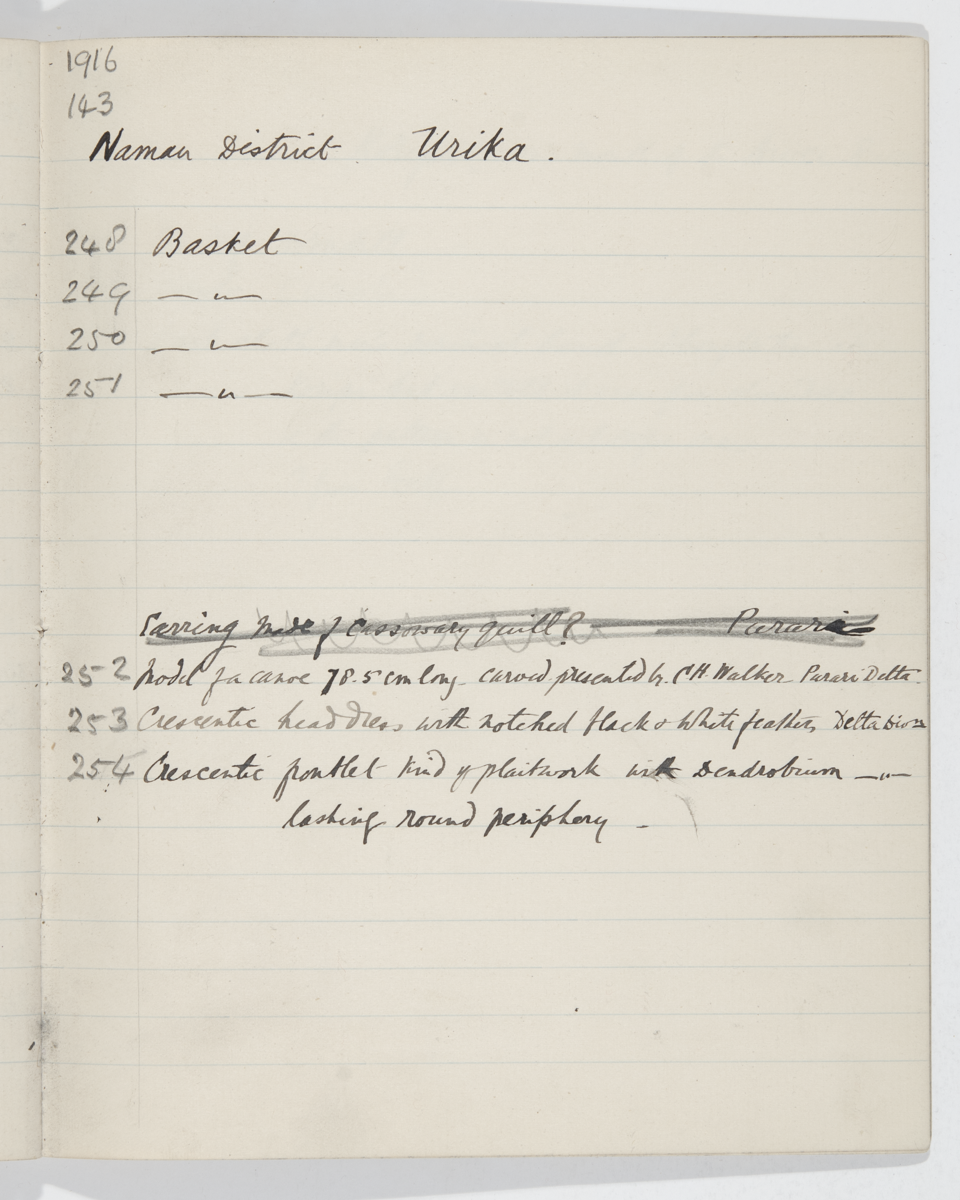 1916
143
Namau District. Urika.
248 Basket
249 — " —
250 — " —
251 — " —
Earring made of cassowary quill? — Purari
252 Model of a canoe 78.5 cm long carved presented by C H Walker Purari Delta.
253 Crescentic head dress with notched black & white feathers Delta Divn
254 Crescentic frontlet kind of plaitwork with Dendrobium — " —
lashing round periphery —